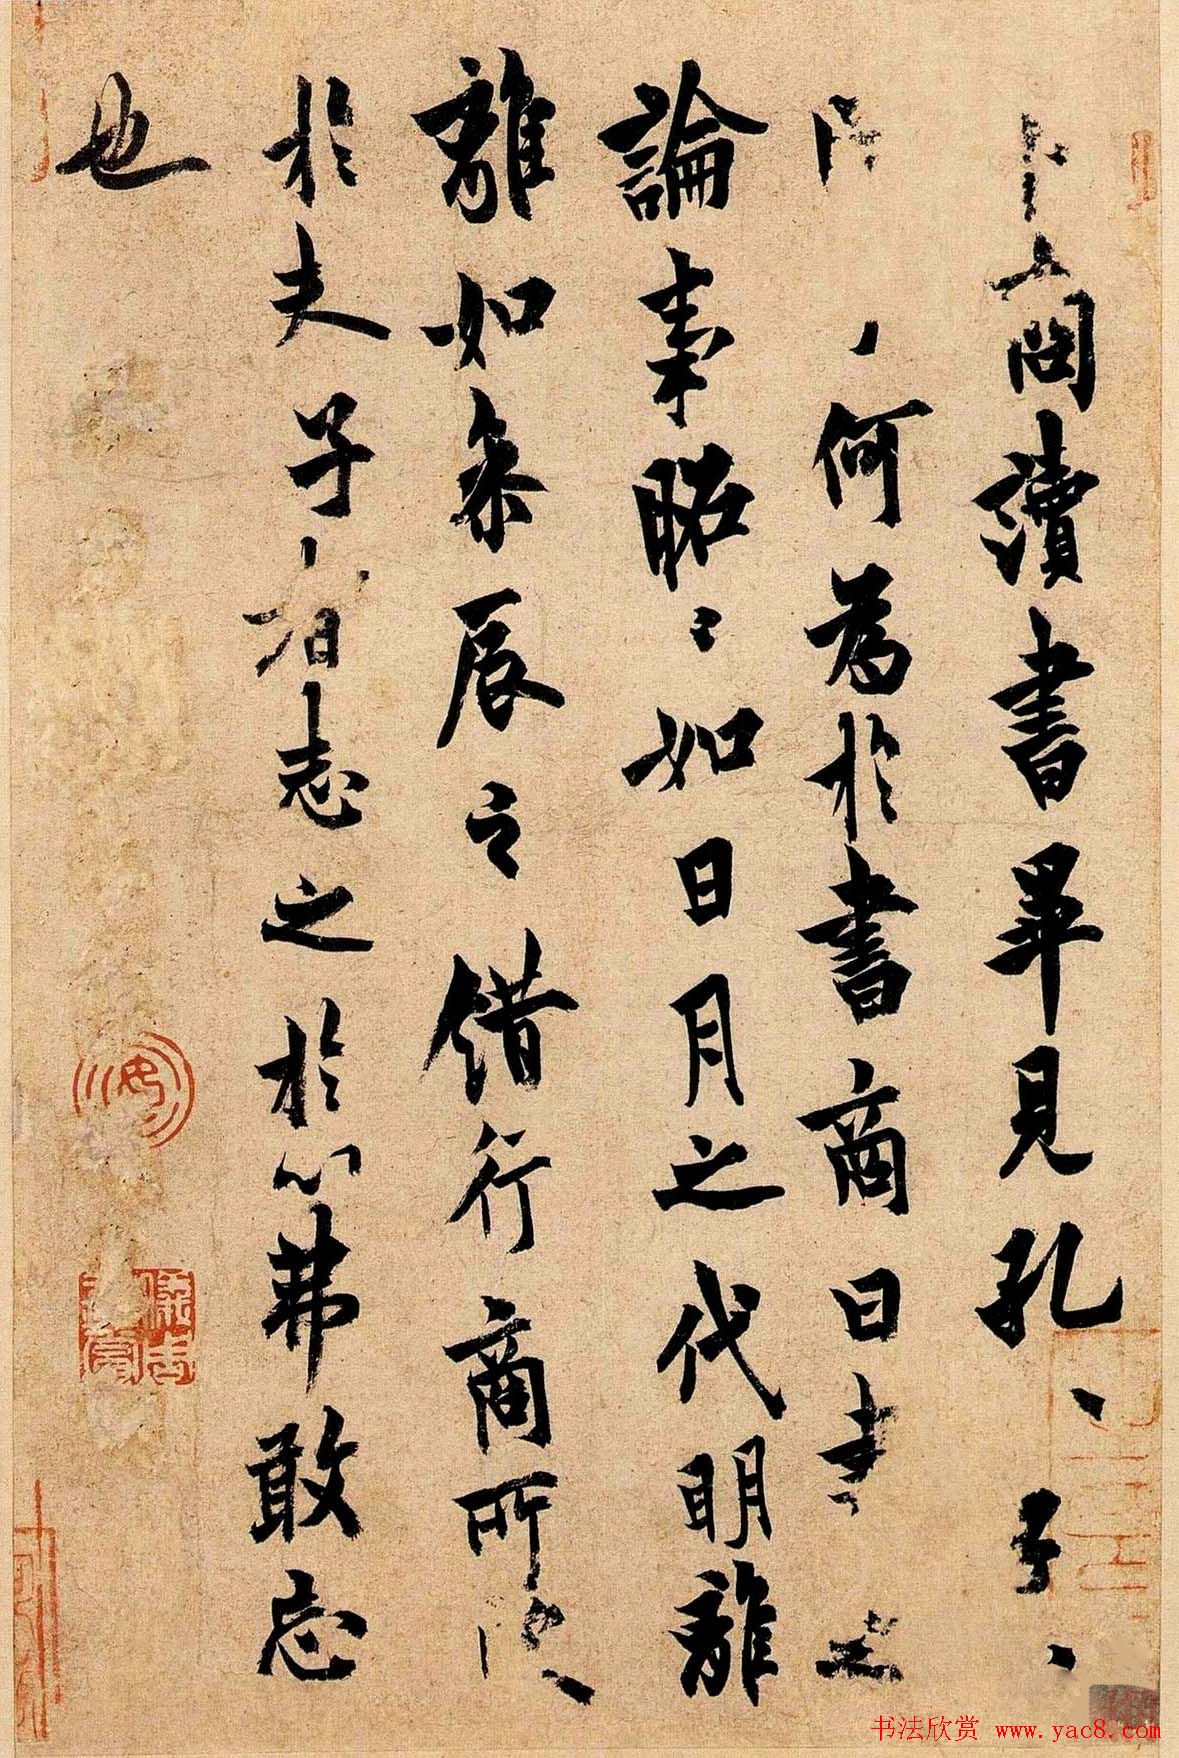 卜商讀書畢見孔、子、
何為於書商曰書之
論事昭〻如日月之代明離
離如参辰之錯行商所
於夫子者志之於心弗敢忘
也
书法欣赏 www.yac8.com